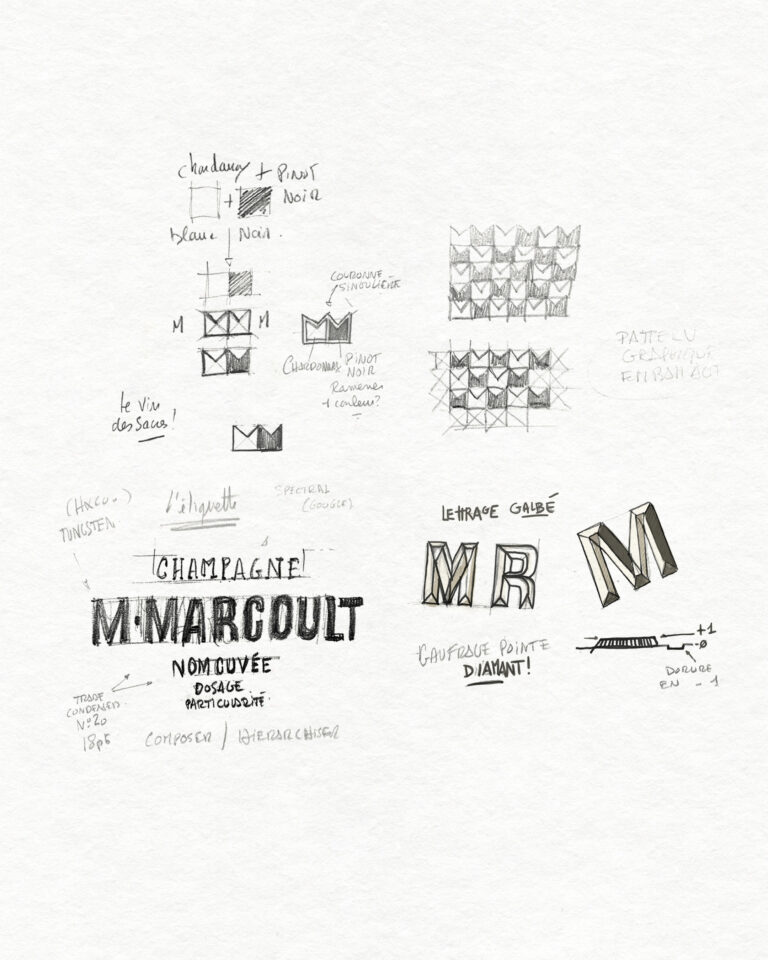 Chardonnay + PINOT
NOIR
+
Blanc Noir.
M M
COURONNE
SINGULIÈRE
CHARDONNAY PINOT
NOIR
Ramener
+ couleur?
Le Vin
des Sacres!
GRAPHIQUE
TUNGSTEN
L'étiquette
SPECTRAL
(GOOGLE)
CHAMPAGNE
M·MARCOULT
NOM CUVÉE
DOSAGE
PARTICULARITÉ.
TRADE
CONDENSED
N°20
COMPOSER / HIÉRARCHISER
LETTRAGE GALBÉ
M R M
GAUFRAGE POINTE
DIAMANT!
+1
-0
DORURE
EN -1